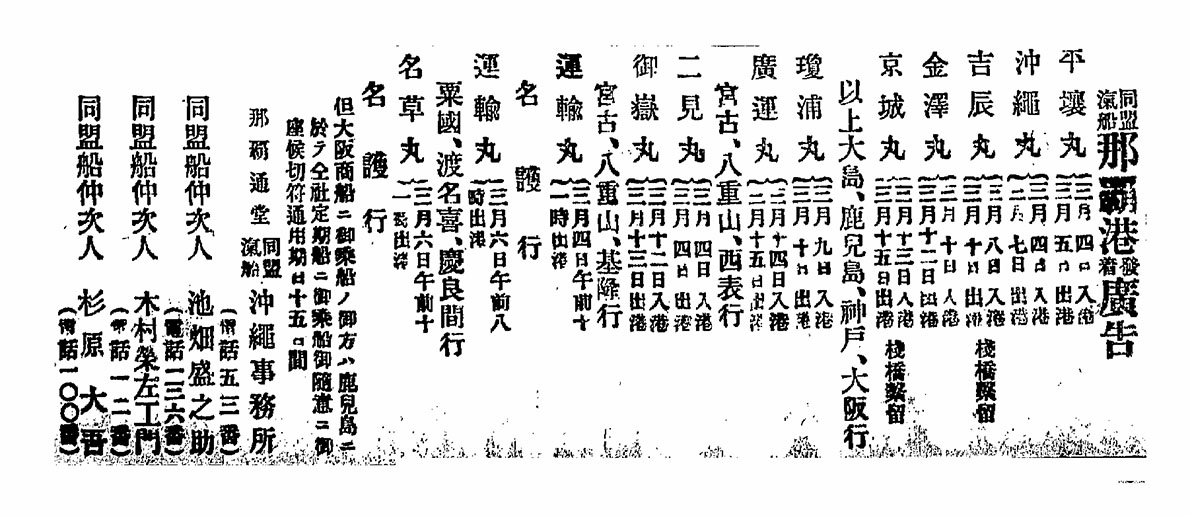 同盟滊船 那覇港發着廣告
平壤丸 三月四日入港 三月五日出港
沖繩丸 三月四日入港 三月七日出港
吉辰丸 三月八日入港 三月十日出港 棧橋繫留
金澤丸 三月十日入港 三月十二日出港
京城丸 三月十三日入港 三月十五日出港 棧橋繫留
以上大島、鹿兒島、神戸、大阪行
瓊浦丸 三月九日入港 三月十日出港
廣運丸 三月十四日入港 三月十五日出港
宮古、八重山、西表行
二見丸 三月四日入港 三月四日出港
御嶽丸 三月十二日入港 三月十三日出港
宮古、八重山、基隆行
運輸丸 三月四日午前十一時出港
名護行
運輸丸 三月六日午前八時出港
粟國、渡名喜、慶良間行
名草丸 三月六日午前十一時出港
名護行
但大阪商船ニ御乘船ノ御方ハ鹿兒島ニ
於テ仝社定期船ニ御乘船御隨意ニ御
座候切符通用期日十五日間
那覇通堂 同盟滊船 沖繩事務所
(電話五三番)
同盟船仲次人 池畑盛之助
(電話一三六番)
同盟船仲次人 木村榮左工門
(電話一二番)
同盟船仲次人 杉原大吾
(電話一〇〇番)